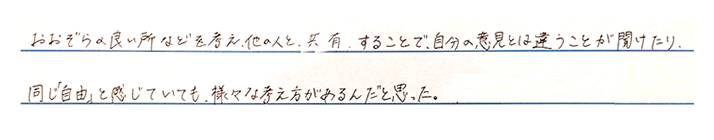 おおぞらの良い所などを考え、他の人と、共有、することで、自分の意見とは違うことが聞けたり、
同じ「自由」と感じていても、様々な考え方があるんだと思った。